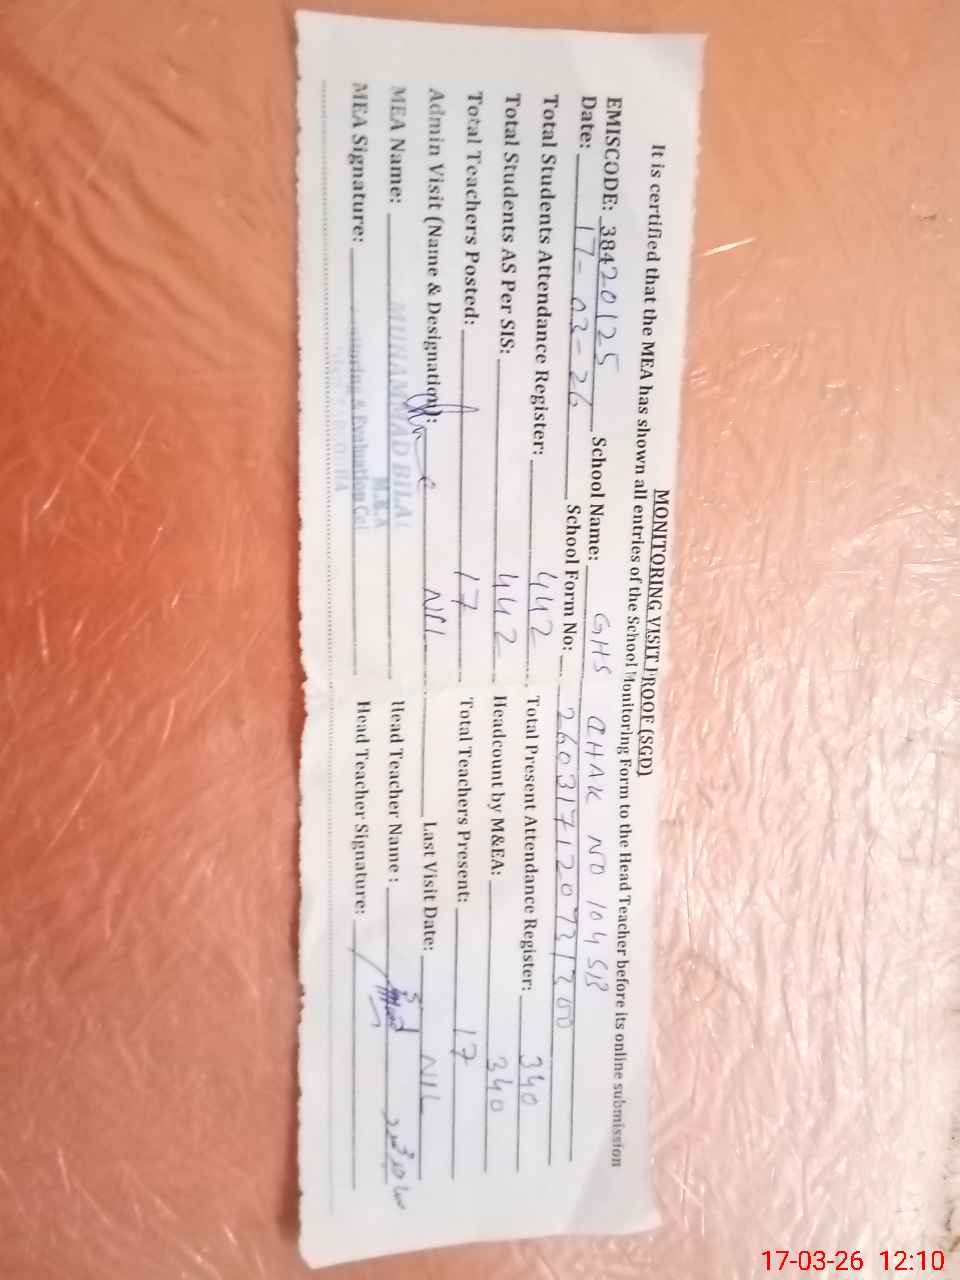 MONITORING VISIT PROOF (SGD)
It is certified that the MEA has shown all entries of the School Monitoring Form to the Head Teacher before its online submission
EMISCODE: 38420125 School Name: GHS CHAK NO 104 SB
Date: 17-03-26 School Form No:
Total Students Attendance Register: 442 Total Present Attendance Register: 340
Total Students AS Per SIS: 442 Headcount by M&EA: 340
Total Teachers Posted: 17 Total Teachers Present: 17
Admin Visit (Name & Designation): NIL Last Visit Date: NIL
MEA Name: MUHAMMAD BILAL Head Teacher Name :
M.E.A
MEA Signature: Monitoring & Evaluation Cell Head Teacher Signature:
17-03-26 12:10